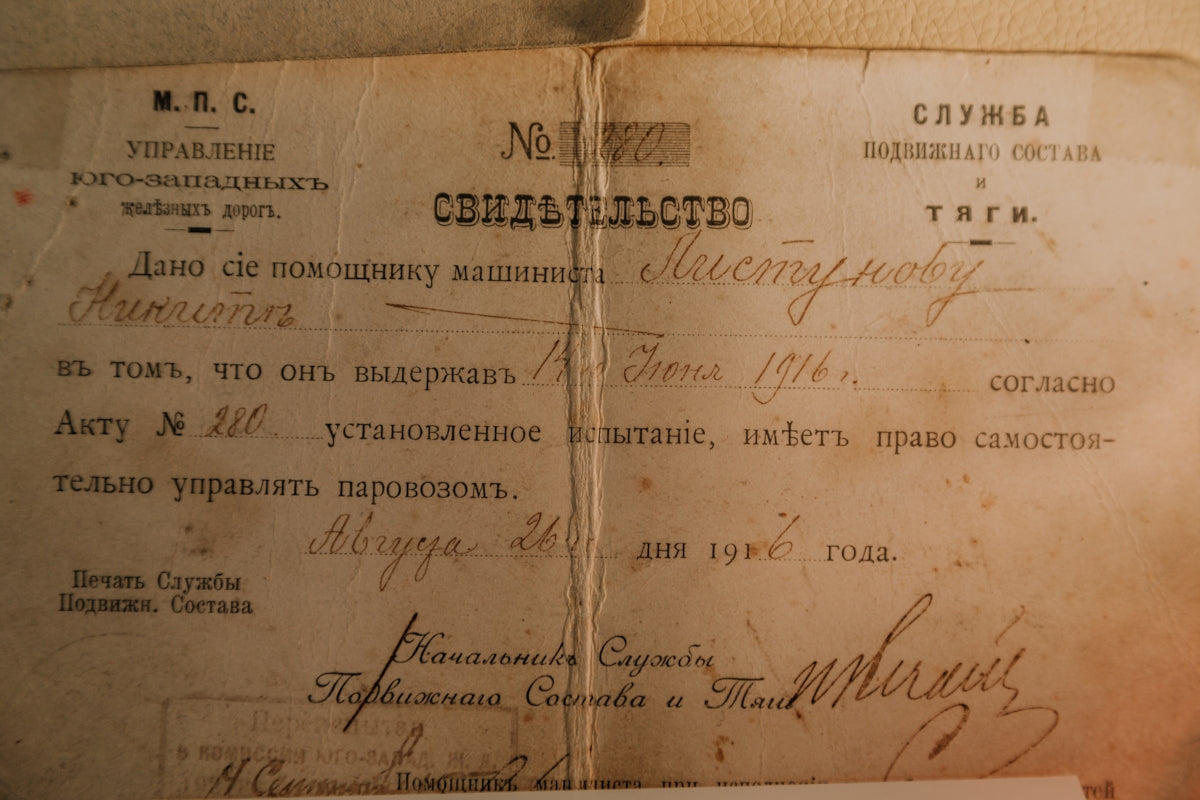 М. П. С.
УПРАВЛЕНІЕ
ЮГО-ЗАПАДНЫХЪ
желѣзныхъ дорогъ.
№ 280.
СЛУЖБА
ПОДВИЖНАГО СОСТАВА
и
ТЯГИ.
СВИДѢТЕЛЬСТВО
Дано сіе помощнику машиниста Листунову
Никитѣ
въ томъ, что онъ выдержавъ 14го Іюня 1916 г. согласно
Акту № 280 установленное испытаніе, имѣетъ право самостоя-
тельно управлять паровозомъ.
Августа 26 дня 1916 года.
Печать Службы
Подвижн. Состава
Начальникъ Службы
Подвижнаго Состава и Тяги
КОМИССИИ ЮГО-ЗАПАД. Ж. Д.
Помощникъ машиниста при